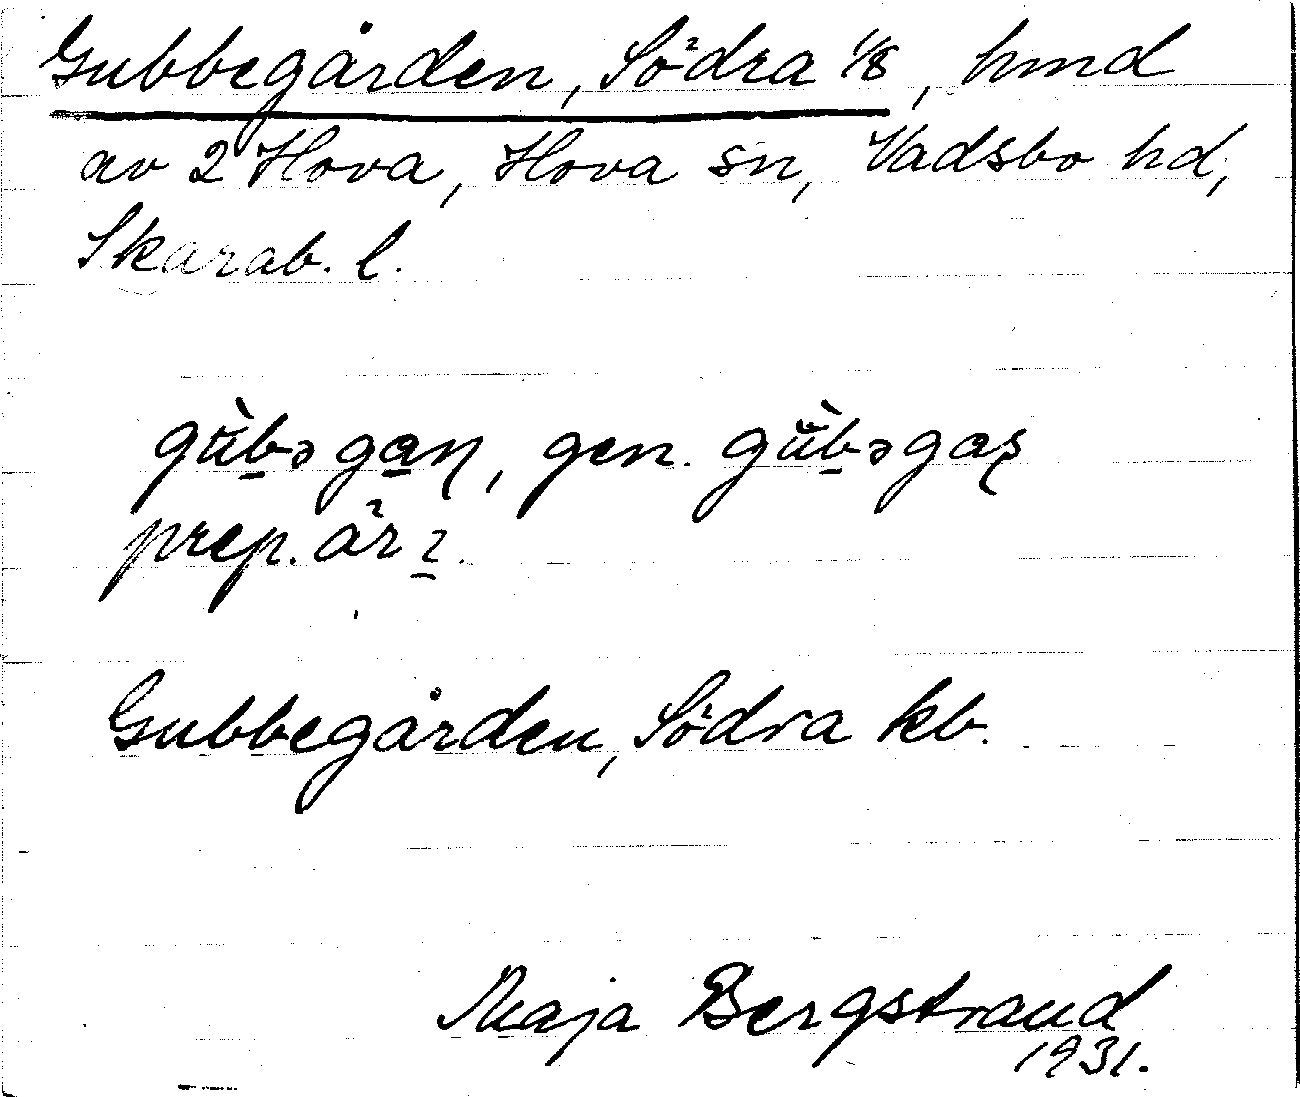 Gubbegården, Södra 1/8, hmd
av 2 Hova, Hova sn, Vadsbo hd,
Skarab. l.
gὺb̲ə ga̲ɳ, gen. gὺb̲əgaʂ
prep. är
Gubbegården, Södra kb.
Maja Bergstrand
1931.